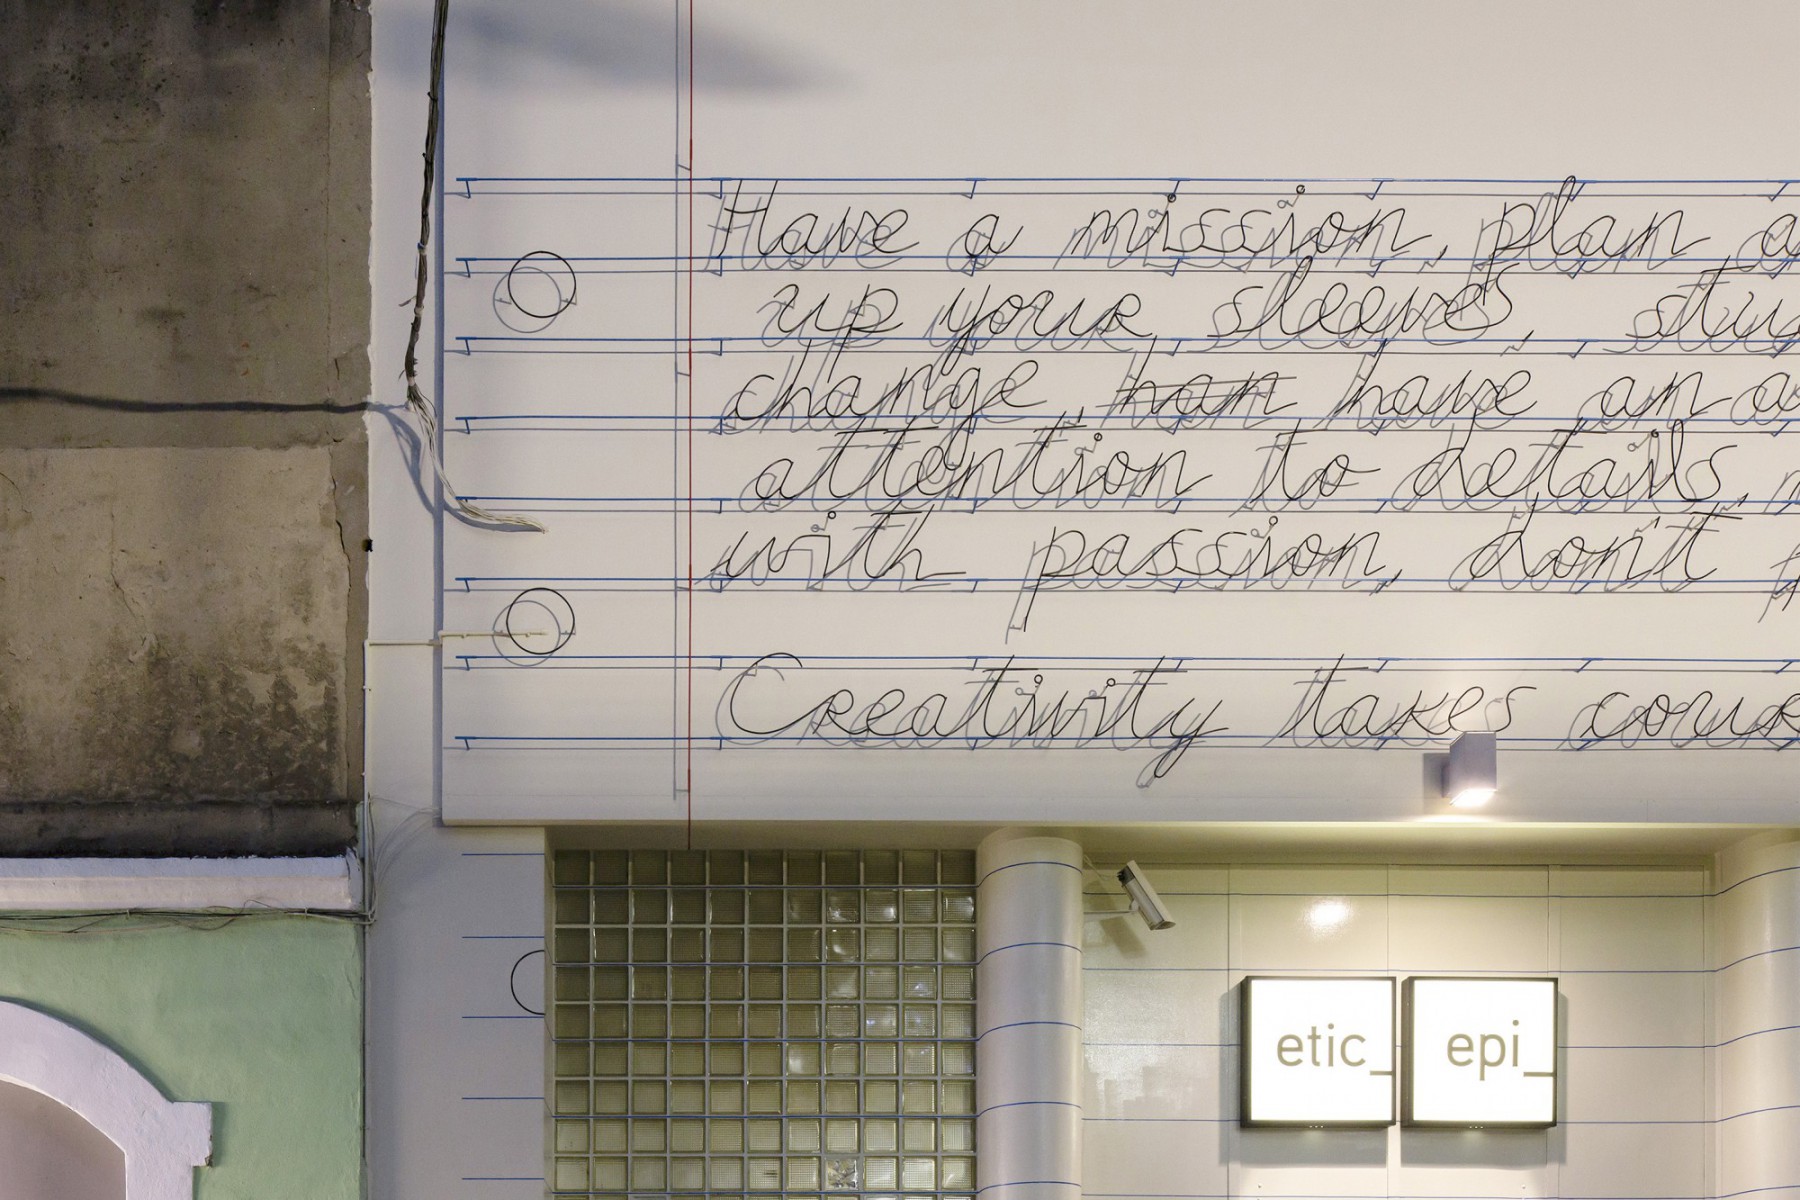 Have a mission, plan a
up your sleeve,
change, han have an
attention to details,
with passion, don't
Creativity takes
etic_
epi_